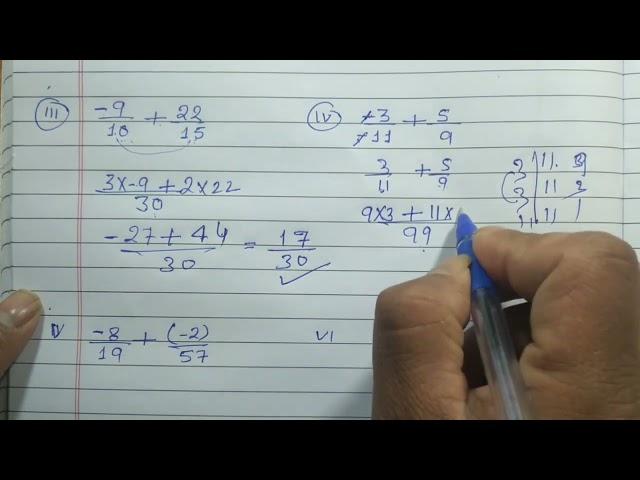 III -9/10 + 22/15
3x-9 + 2x22 / 30
-27 + 44 / 30 = 17/30
IV -3/-11 + 5/9
3/11 + 5/9
9x3 + 11x / 99
3 | 11. 9
3 | 11 3
11 | 11 1
V -8/19 + (-2)/57
VI